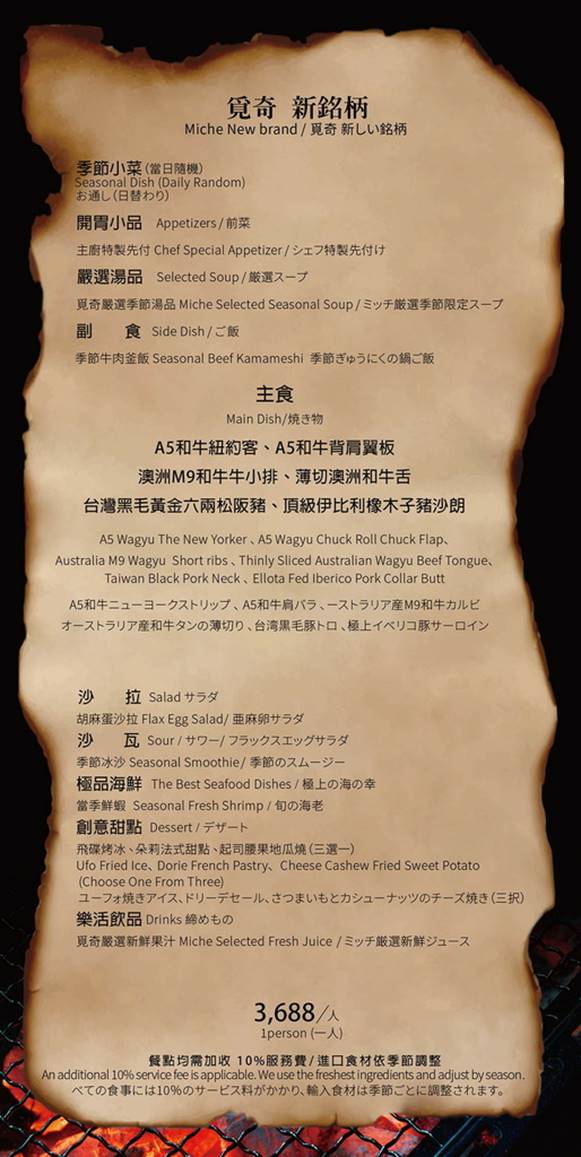 覓奇 新銘柄
Miche New brand / 覓奇 新しい銘柄
季節小菜(當日隨機)
Seasonal Dish (Daily Random)
お通し(日替わり)
開胃小品 Appetizers / 前菜
主廚特製先付 Chef Special Appetizer / シェフ特製先付け
嚴選湯品 Selected Soup / 厳選スープ
覓奇嚴選季節湯品 Miche Selected Seasonal Soup / ミッチ厳選季節限定スープ
副 食 Side Dish / ご飯
季節牛肉釜飯 Seasonal Beef Kamameshi 季節ぎゅうにくの鍋ご飯
主食
Main Dish/焼き物
A5和牛紐約客、A5和牛背肩翼板
澳洲M9和牛牛小排、薄切澳洲和牛舌
台灣黑毛黃金六兩松阪豬、頂級伊比利橡木子豬沙朗
A5 Wagyu The New Yorker、A5 Wagyu Chuck Roll Chuck Flap、
Australia M9 Wagyu Short ribs、Thinly Sliced Australian Wagyu Beef Tongue、
Taiwan Black Pork Neck、Ellota Fed Iberico Pork Collar Butt
A5和牛ニューヨークストリップ、A5和牛肩バラ、ーストラリア産M9和牛カルビ
オーストラリア産和牛タンの薄切り、台湾黒毛豚トロ、極上イベリコ豚サーロイン
沙 拉 Salad サラダ
胡麻蛋沙拉 Flax Egg Salad/ 亜麻卵サラダ
沙 瓦 Sour / サワー/ フラックスエッグサラダ
季節冰沙 Seasonal Smoothie/ 季節のスムージー
極品海鮮 The Best Seafood Dishes / 極上の海の幸
當季鮮蝦 Seasonal Fresh Shrimp / 旬の海老
創意甜點 Dessert / デザート
飛碟烤冰、朵莉法式甜點、起司腰果地瓜燒(三選一)
Ufo Fried Ice、Dorie French Pastry、Cheese Cashew Fried Sweet Potato
(Choose One From Three)
ユーフォ焼きアイス、ドリーデセール、さつまいもとカシューナッツのチーズ焼き(三択)
樂活飲品 Drinks 締めもの
覓奇嚴選新鮮果汁 Miche Selected Fresh Juice / ミッチ厳選新鮮ジュース
3,688/人
1person (一人)
餐點均需加收 10%服務費/進口食材依季節調整
An additional 10% service fee is applicable. We use the freshest ingredients and adjust by season.
べての食事には10%のサービス料がかかり、輸入食材は季節ごとに調整されます。